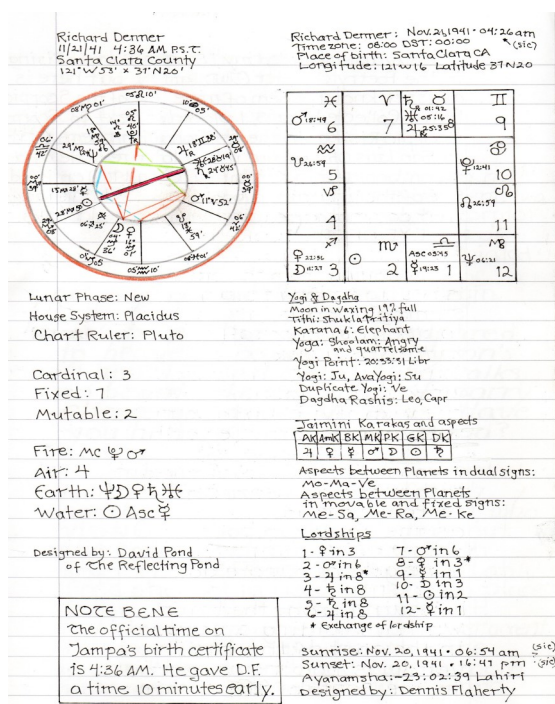 Richard Dermer
11/21/41 4:36 AM P.S.T.
Santa Clara County
121°W53' x 37°N20'
Lunar Phase: New
House System: Placidus
Chart Ruler: Pluto
Cardinal: 3
Fixed: 7
Mutable: 2
Fire: MC ♀ ♂
Air: 4
Earth: ♆ ☽ ♀ ♄ ♅
Water: ☉ Asc ☿
Designed by: David Pond
of the Reflecting Pond
NOTE BENE
The official time on
Jampa's birth certificate
is 4:36 AM. He gave D.F.
a time 10 minutes early.
Richard Dermer: Nov. 21, 1941 · 04:26 am
Time zone: 08:00 DST: 00:00 (sic)
Place of birth: Santa Clara CA
Longitude: 121 W 16 Latitude 37 N 20
♓ ♈ ♄ R 01:42 ♉ ♊
♂ 18:49 ♅ R 05:16
♃ R 25:35
6 7 8 9
♒ ♋
☋ 26:59 12:41
5 10
♑ ♌
☊ 26:59
4 11
♐ ♏ ♎ ♍
♀ 22:56 ☉ Asc 05:45 ♆ 06:21
☽ 11:27 3 2 ☿ 19:23 1 12
Yogi & Dagdha
Moon in Waxing 19% full
Tithi: Shukla Tritiya
Karana 6: Elephant
Yoga: Shoolam: Angry
and quarrelsome
Yogi Point: 20:33:51 Libr
Yogi: Ju, AvaYogi: Su
Duplicate Yogi: Ve
Dagdha Rashis: Leo, Capr
Jaimini Karakas and aspects
AK AmK BK MK PK GK DK
♃ ♀ ☿ ♂ ☽ ☉ ♄
Aspects between Planets in dual signs:
Mo-Ma-Ve
Aspects between Planets
in movable and fixed signs:
Me-Sa, Me-Ra, Me-Ke
Lordships
1 - ♀ in 3 7 - ♂ in 6
2 - ♂ in 6 8 - ♀ in 3*
3 - ♃ in 8* 9 - ☿ in 1
4 - ♄ in 8 10 - ☽ in 3
5 - ♄ in 8 11 - ☉ in 2
6 - ♃ in 8 12 - ☿ in 1
* Exchange of lordship
Sunrise: Nov. 20, 1941 · 06:54 am (sic)
Sunset: Nov. 20, 1941 · 16:41 pm (sic)
Ayanamsha: -23:02:39 Lahiri
Designed by: Dennis Flaherty